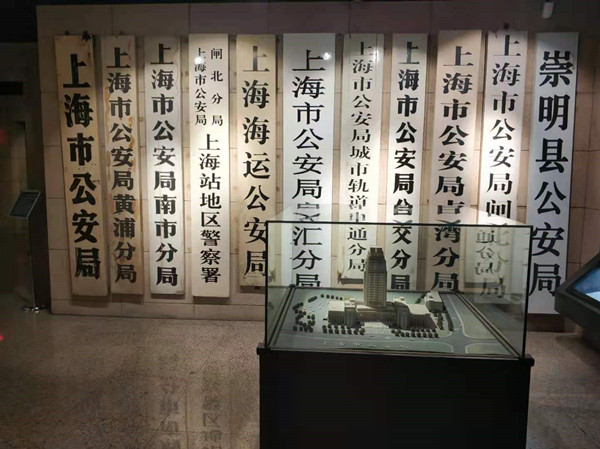 上海市公安局
上海市公安局黄浦分局
上海市公安局南市分局
上海市公安局
闸北分局
上海站地区警察署
上海海运公安局
上海市公安局 汇分局
上海市公安局城市轨道交通分局
上海市公安局公交分局
上海市公安局 湾分局
上海市公安局 分局
崇明县公安局